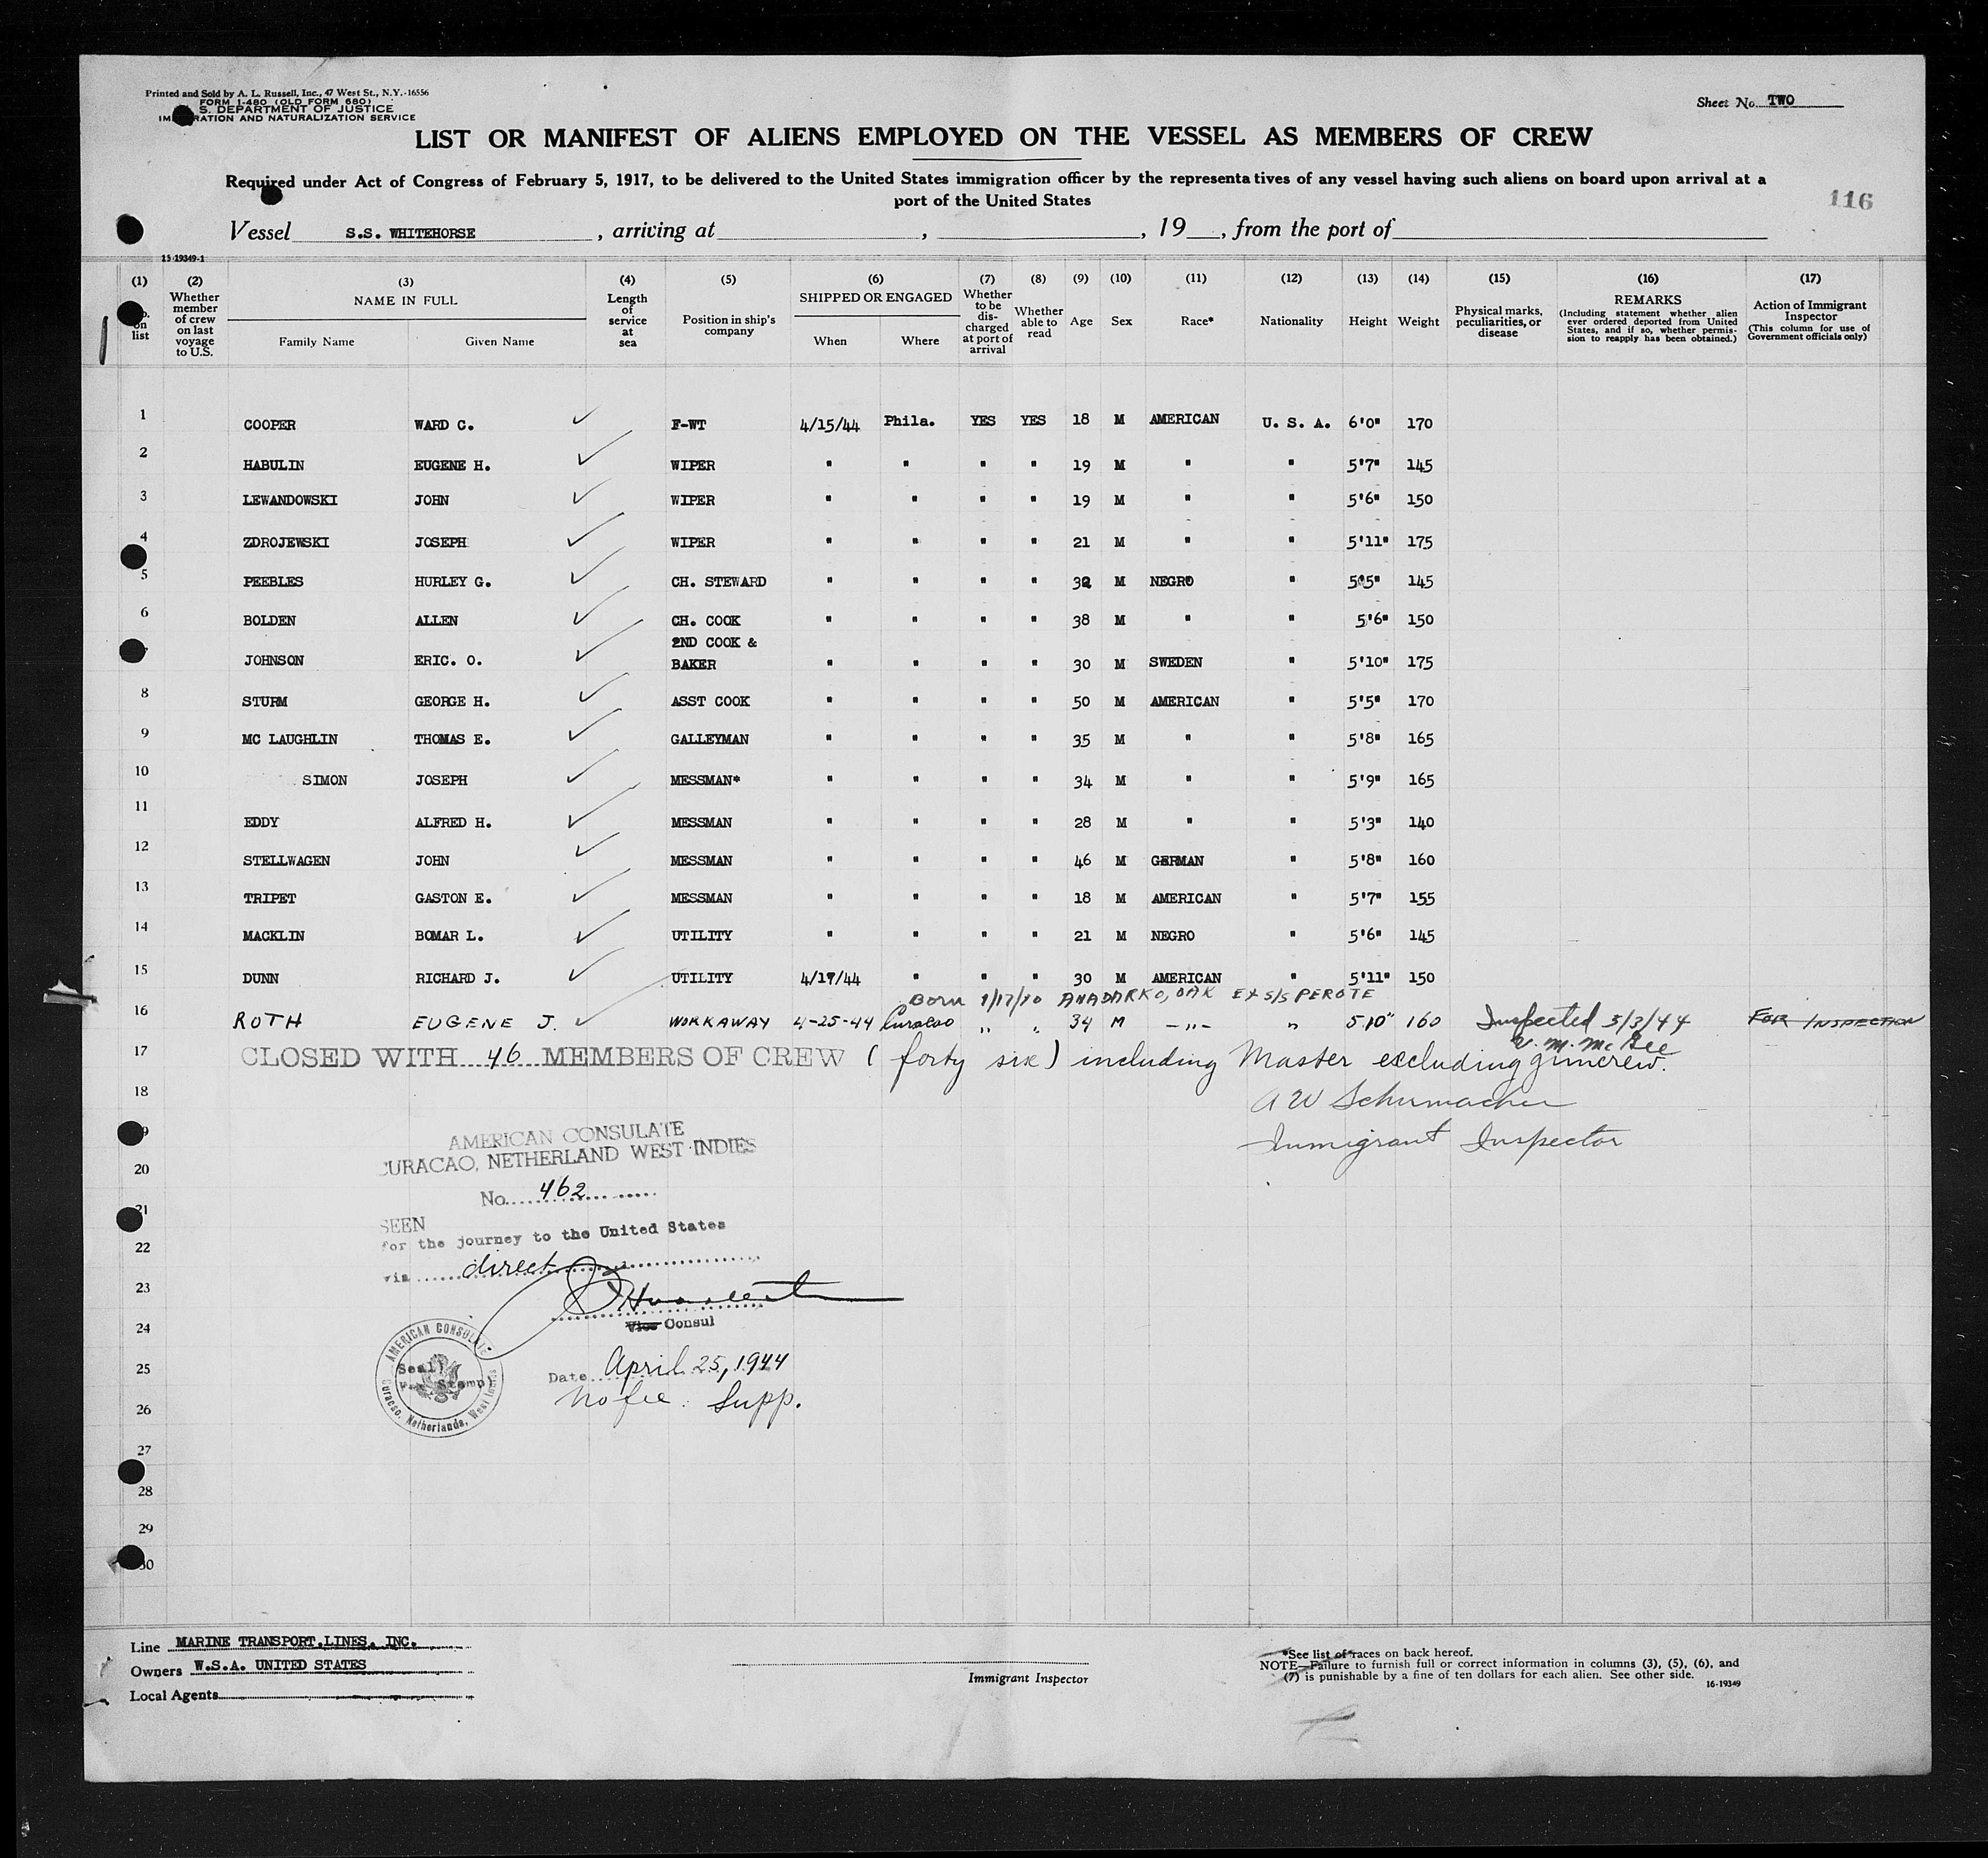 Printed and Sold by A. L. Russell, Inc., 47 West St., N.Y.-16556
FORM I-480 (OLD FORM 680)
S. DEPARTMENT OF JUSTICE
IM RATION AND NATURALIZATION SERVICE
Sheet No. TWO
LIST OR MANIFEST OF ALIENS EMPLOYED ON THE VESSEL AS MEMBERS OF CREW
Required under Act of Congress of February 5, 1917, to be delivered to the United States immigration officer by the representatives of any vessel having such aliens on board upon arrival at a
port of the United States
116
Vessel S.S. WHITEHORSE , arriving at , , 19 , from the port of
15 19349-1
(1) on list (2) Whether member of crew on last voyage to U.S. (3) NAME IN FULL Family Name Given Name (4) Length of service at sea (5) Position in ship's company (6) SHIPPED OR ENGAGED When Where (7) Whether to be dis-charged at port of arrival (8) Whether able to read (9) Age (10) Sex (11) Race* (12) Nationality (13) Height (14) Weight (15) Physical marks, peculiarities, or disease (16) REMARKS (Including statement whether alien ever ordered deported from United States, and if so, whether permis-sion to reapply has been obtained.) (17) Action of Immigrant Inspector (This column for use of Government officials only)
1 COOPER WARD C. ✓ F-WT 4/15/44 Phila. YES YES 18 M AMERICAN U. S. A. 6'0" 170
2 HABULIN EUGENE H. ✓ WIPER " " " " 19 M " " 5'7" 145
3 LEWANDOWSKI JOHN ✓ WIPER " " " " 19 M " " 5'6" 150
4 ZDROJEWSKI JOSEPH ✓ WIPER " " " " 21 M " " 5'11" 175
5 PEEBLES HURLEY G. ✓ CH. STEWARD " " " " 32 M NEGRO " 5'5" 145
6 BOLDEN ALLEN ✓ CH. COOK " " " " 38 M " " 5'6" 150
2ND COOK &
JOHNSON ERIC. O. ✓ BAKER " " " " 30 M SWEDEN " 5'10" 175
8 STURM GEORGE H. ✓ ASST COOK " " " " 50 M AMERICAN " 5'5" 170
9 MC LAUGHLIN THOMAS E. ✓ GALLEYMAN " " " " 35 M " " 5'8" 165
10 SIMON JOSEPH ✓ MESSMAN* " " " " 34 M " " 5'9" 165
11 EDDY ALFRED H. ✓ MESSMAN " " " " 28 M " " 5'3" 140
12 STELLWAGEN JOHN ✓ MESSMAN " " " " 46 M GERMAN " 5'8" 160
13 TRIPET GASTON E. ✓ MESSMAN " " " " 18 M AMERICAN " 5'7" 155
14 MACKLIN BOMAR L. ✓ UTILITY " " " " 21 M NEGRO " 5'6" 145
15 DUNN RICHARD J. ✓ UTILITY 4/17/44 " " " 30 M AMERICAN " 5'11" 150
BORN 1/17/10 ANADARKO, OAK EX S/S PEROTE
16 ROTH EUGENE J. ✓ WORKAWAY 4-25-44 Curacao " " 34 M -"- " 5.10" 160 Inspected 5/3/44 FOR INSPECTION
V. M. McGee
17 CLOSED WITH 46 MEMBERS OF CREW (forty six) including Master excluding guncrew.
18 A W Schumacher
Immigrant Inspector
AMERICAN CONSULATE
CURACAO, NETHERLAND WEST INDIES
20
No. 462
21
SEEN
for the journey to the United States
22
via direct
23
Vice Consul
24
AMERICAN CONSULATE
Curacao, Netherlands, West Indies
Seal
Stamp)
25 Date April 25, 1944
26 No fee. Supp.
27
28
29
30
Line MARINE TRANSPORT LINES, INC.
Owners W.S.A. UNITED STATES
Local Agents
Immigrant Inspector
*See list of races on back hereof.
NOTE—Failure to furnish full or correct information in columns (3), (5), (6), and
(7) is punishable by a fine of ten dollars for each alien. See other side.
16-19349